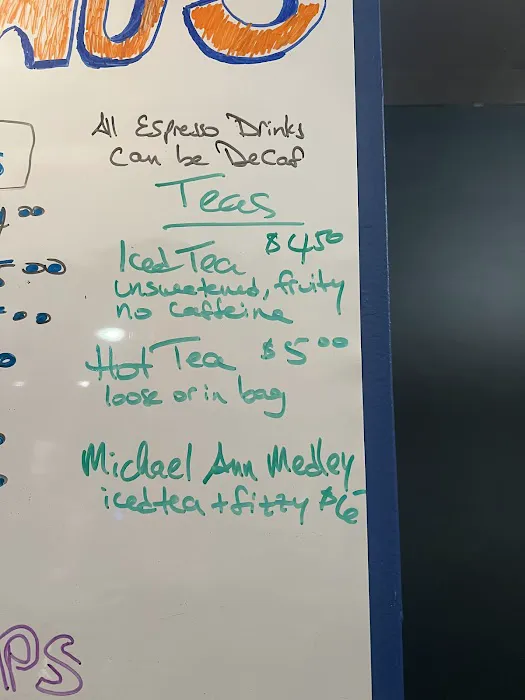 All Espresso Drinks
Can be Decaf
Teas
Iced Tea $4.50
unsweetened, fruity
no caffeine
Hot Tea $5.00
loose or in bag
Michael Ann Medley
iced tea + fizzy $6
PS